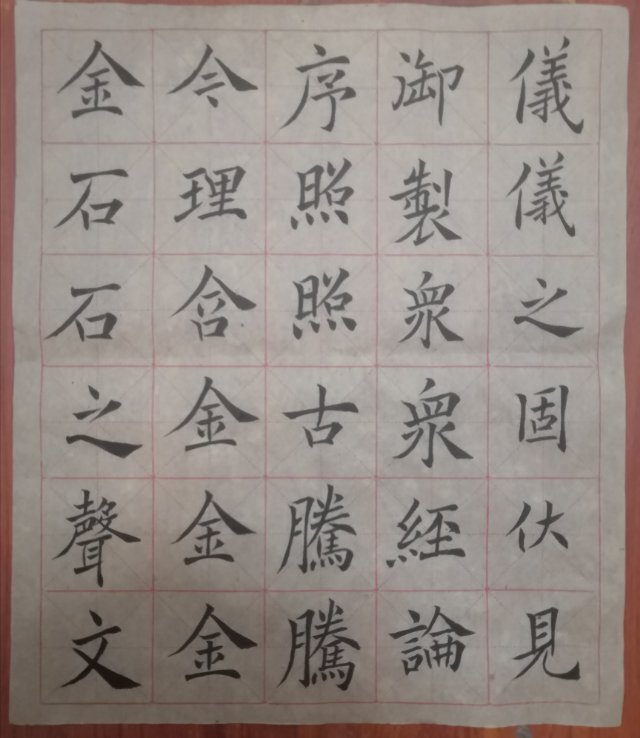 儀儀之固伏見
御製衆衆經論
序照照古騰騰
今理含金金金
金石石之聲文